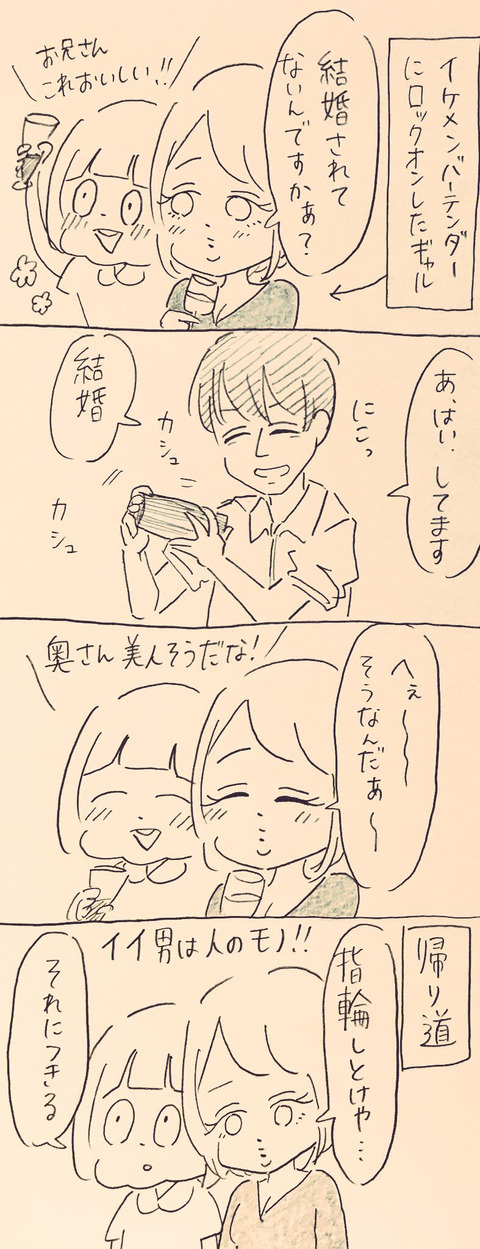 イケメンバーテンダー
にロックオンしたギャル
結婚されて
ないんですかぁ？
お兄さん
これおいしい!!
あ、はい。してます
にこっ
カシュ
カシュ
結婚
へぇ〜〜
そうなんだぁ〜
奥さん美人そうだな!
帰り道
指輪しとけや…
イイ男は人のモノ!!
それにつきる